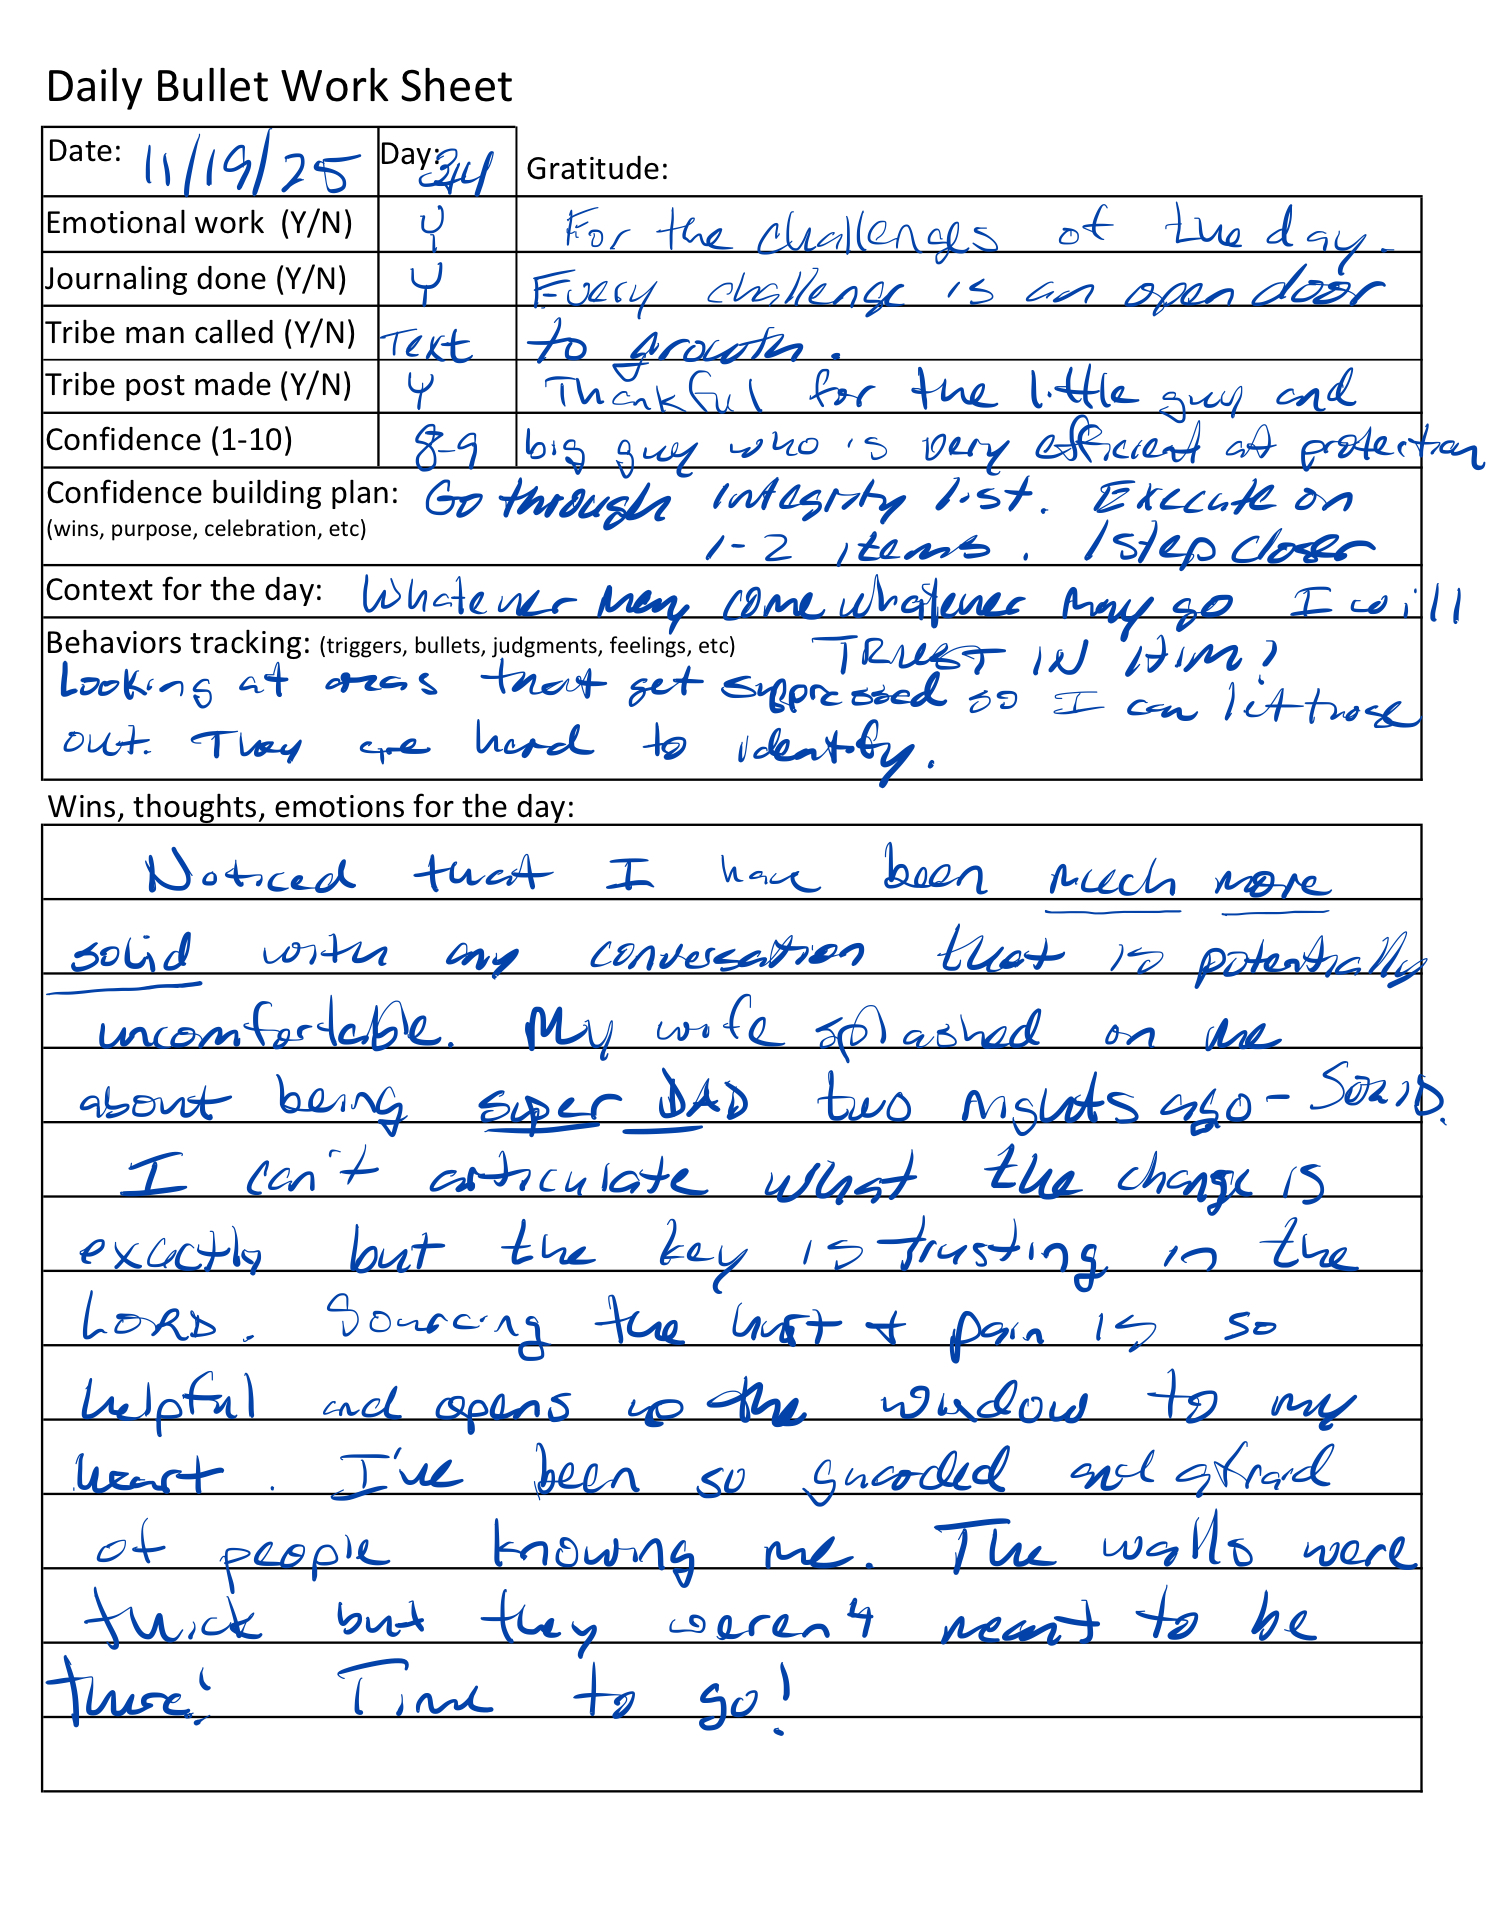 Daily Bullet Work Sheet
Date: 11/19/25 Day: 34 Gratitude:
Emotional work (Y/N) Y For the challenges of the day.
Journaling done (Y/N) Y Every challenge is an open door
Tribe man called (Y/N) Text to growth.
Tribe post made (Y/N) Y Thankful for the little guy and
Confidence (1-10) 8-9 big guy who is very efficient at protection
Confidence building plan: Go through integrity list. Execute on
(wins, purpose, celebration, etc) 1-2 items. 1 step closer
Context for the day: Whatever may come whatever may go I will
Behaviors tracking: (triggers, bullets, judgments, feelings, etc) TRUST IN HIM!
Looking at areas that get suppressed so I can let those
out. They are hard to identify.
Wins, thoughts, emotions for the day:
Noticed that I have been much more
solid with any conversation that is potentially
uncomfortable. My wife splashed on me
about being super DAD two nights ago - SOLID.
I can't articulate what the change is
exactly but the key is trusting in the
LORD. Sourcing the hurt + pain is so
helpful and opens up the window to my
heart. I've been so guarded and afraid
of people knowing me. The walls were
thick but they weren't meant to be
there! Time to go!